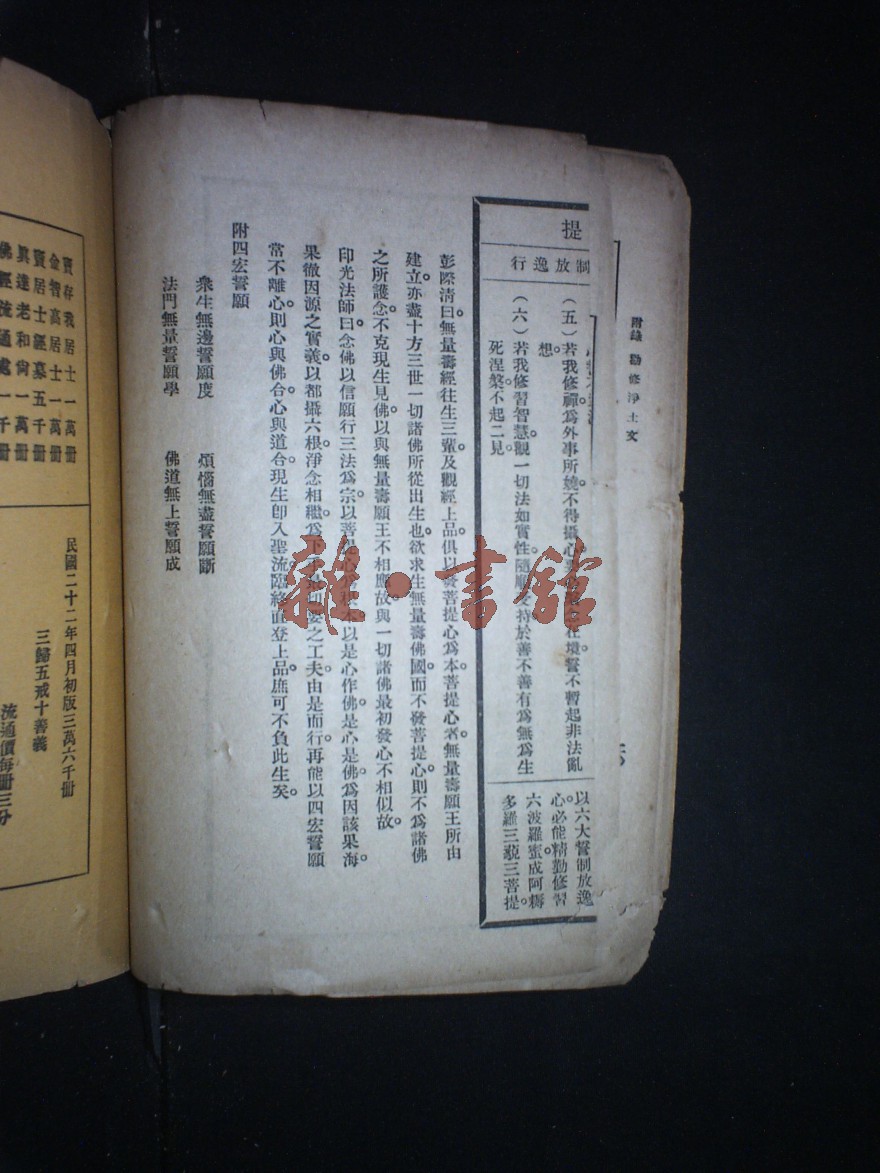 附錄 勸修淨土文
提
制放逸行
(五)若我修禪為外事所嬈不得攝心
在境誓不暫起非法亂
想。
(六)若我修習智慧觀一切法如實性。隨順受持於善不善有為無為生
死涅槃。不起二見。
以六大誓制放逸
心。必能精勤修習
六波羅蜜成阿耨
多羅三藐三菩提。
彭際清曰。無量壽經往生三輩及觀經上品。俱以發菩提心為本。菩提心者。無量壽願王所由
建立。亦盡十方三世一切諸佛所從出生也。欲求生無量壽佛國。而不發菩提心。則不為諸佛
之所護念。不克現生見佛。以與無量壽願王不相應故。與一切諸佛最初發心不相似故。
印光法師曰。念佛以信願行三法為宗。以菩提心為根本。以是心作佛。是心是佛。為因該果海。
果徹因源之實義。以都攝六根。淨念相繼。為下手最切要之工夫。由是而行。再能以四宏誓願
常不離心。則心與佛合。心與道合。現生即入聖流。臨終直登上品。庶可不負此生矣。
附四宏誓願
眾生無邊誓願度 煩惱無盡誓願斷
法門無量誓願學 佛道無上誓願成
寶存我居士一萬冊
金智高居士一萬冊
寶居士經募五千冊
異達老和尙一萬冊
佛經流通處一千冊
民國二十二年四月初版三萬六千冊
三歸五戒十善義
流通價每冊三分
雜·書館